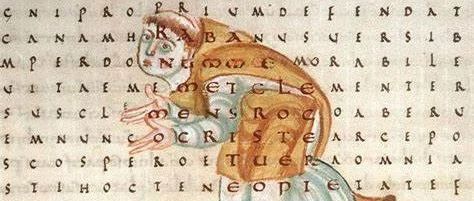 C N I P R O P R I U M D E F E N D A T
C A N A M H R A B A N U S U E R S I B
M P E R D O N U M M E M O R A B I L E
U I T A E M E M E T C L E M E N T E R
S U S C L E M E N S R O G O A B E R U
E M N U N C O C R I S T E A R C E P O
S C O S P E R O E T U E R A O M N I A
S T I H O C T E N E O P I E T A T E F